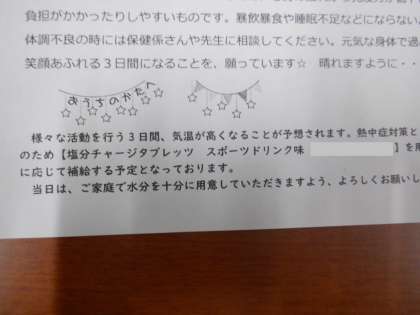 負担がかかったりしやすいものです。暴飲暴食や睡眠不足などにならない
体調不良の時には保健係さんや先生に相談してください。元気な身体で過
笑顔あふれる３日間になることを、願っています☆　晴れますように・・
おうちのかたへ
様々な活動を行う３日間、気温が高くなることが予想されます。熱中症対策と
のため【塩分チャージタブレッツ　スポーツドリンク味　　　　　　　】を用
に応じて補給する予定となっております。
当日は、ご家庭で水分を十分に用意していただきますよう、よろしくお願いし